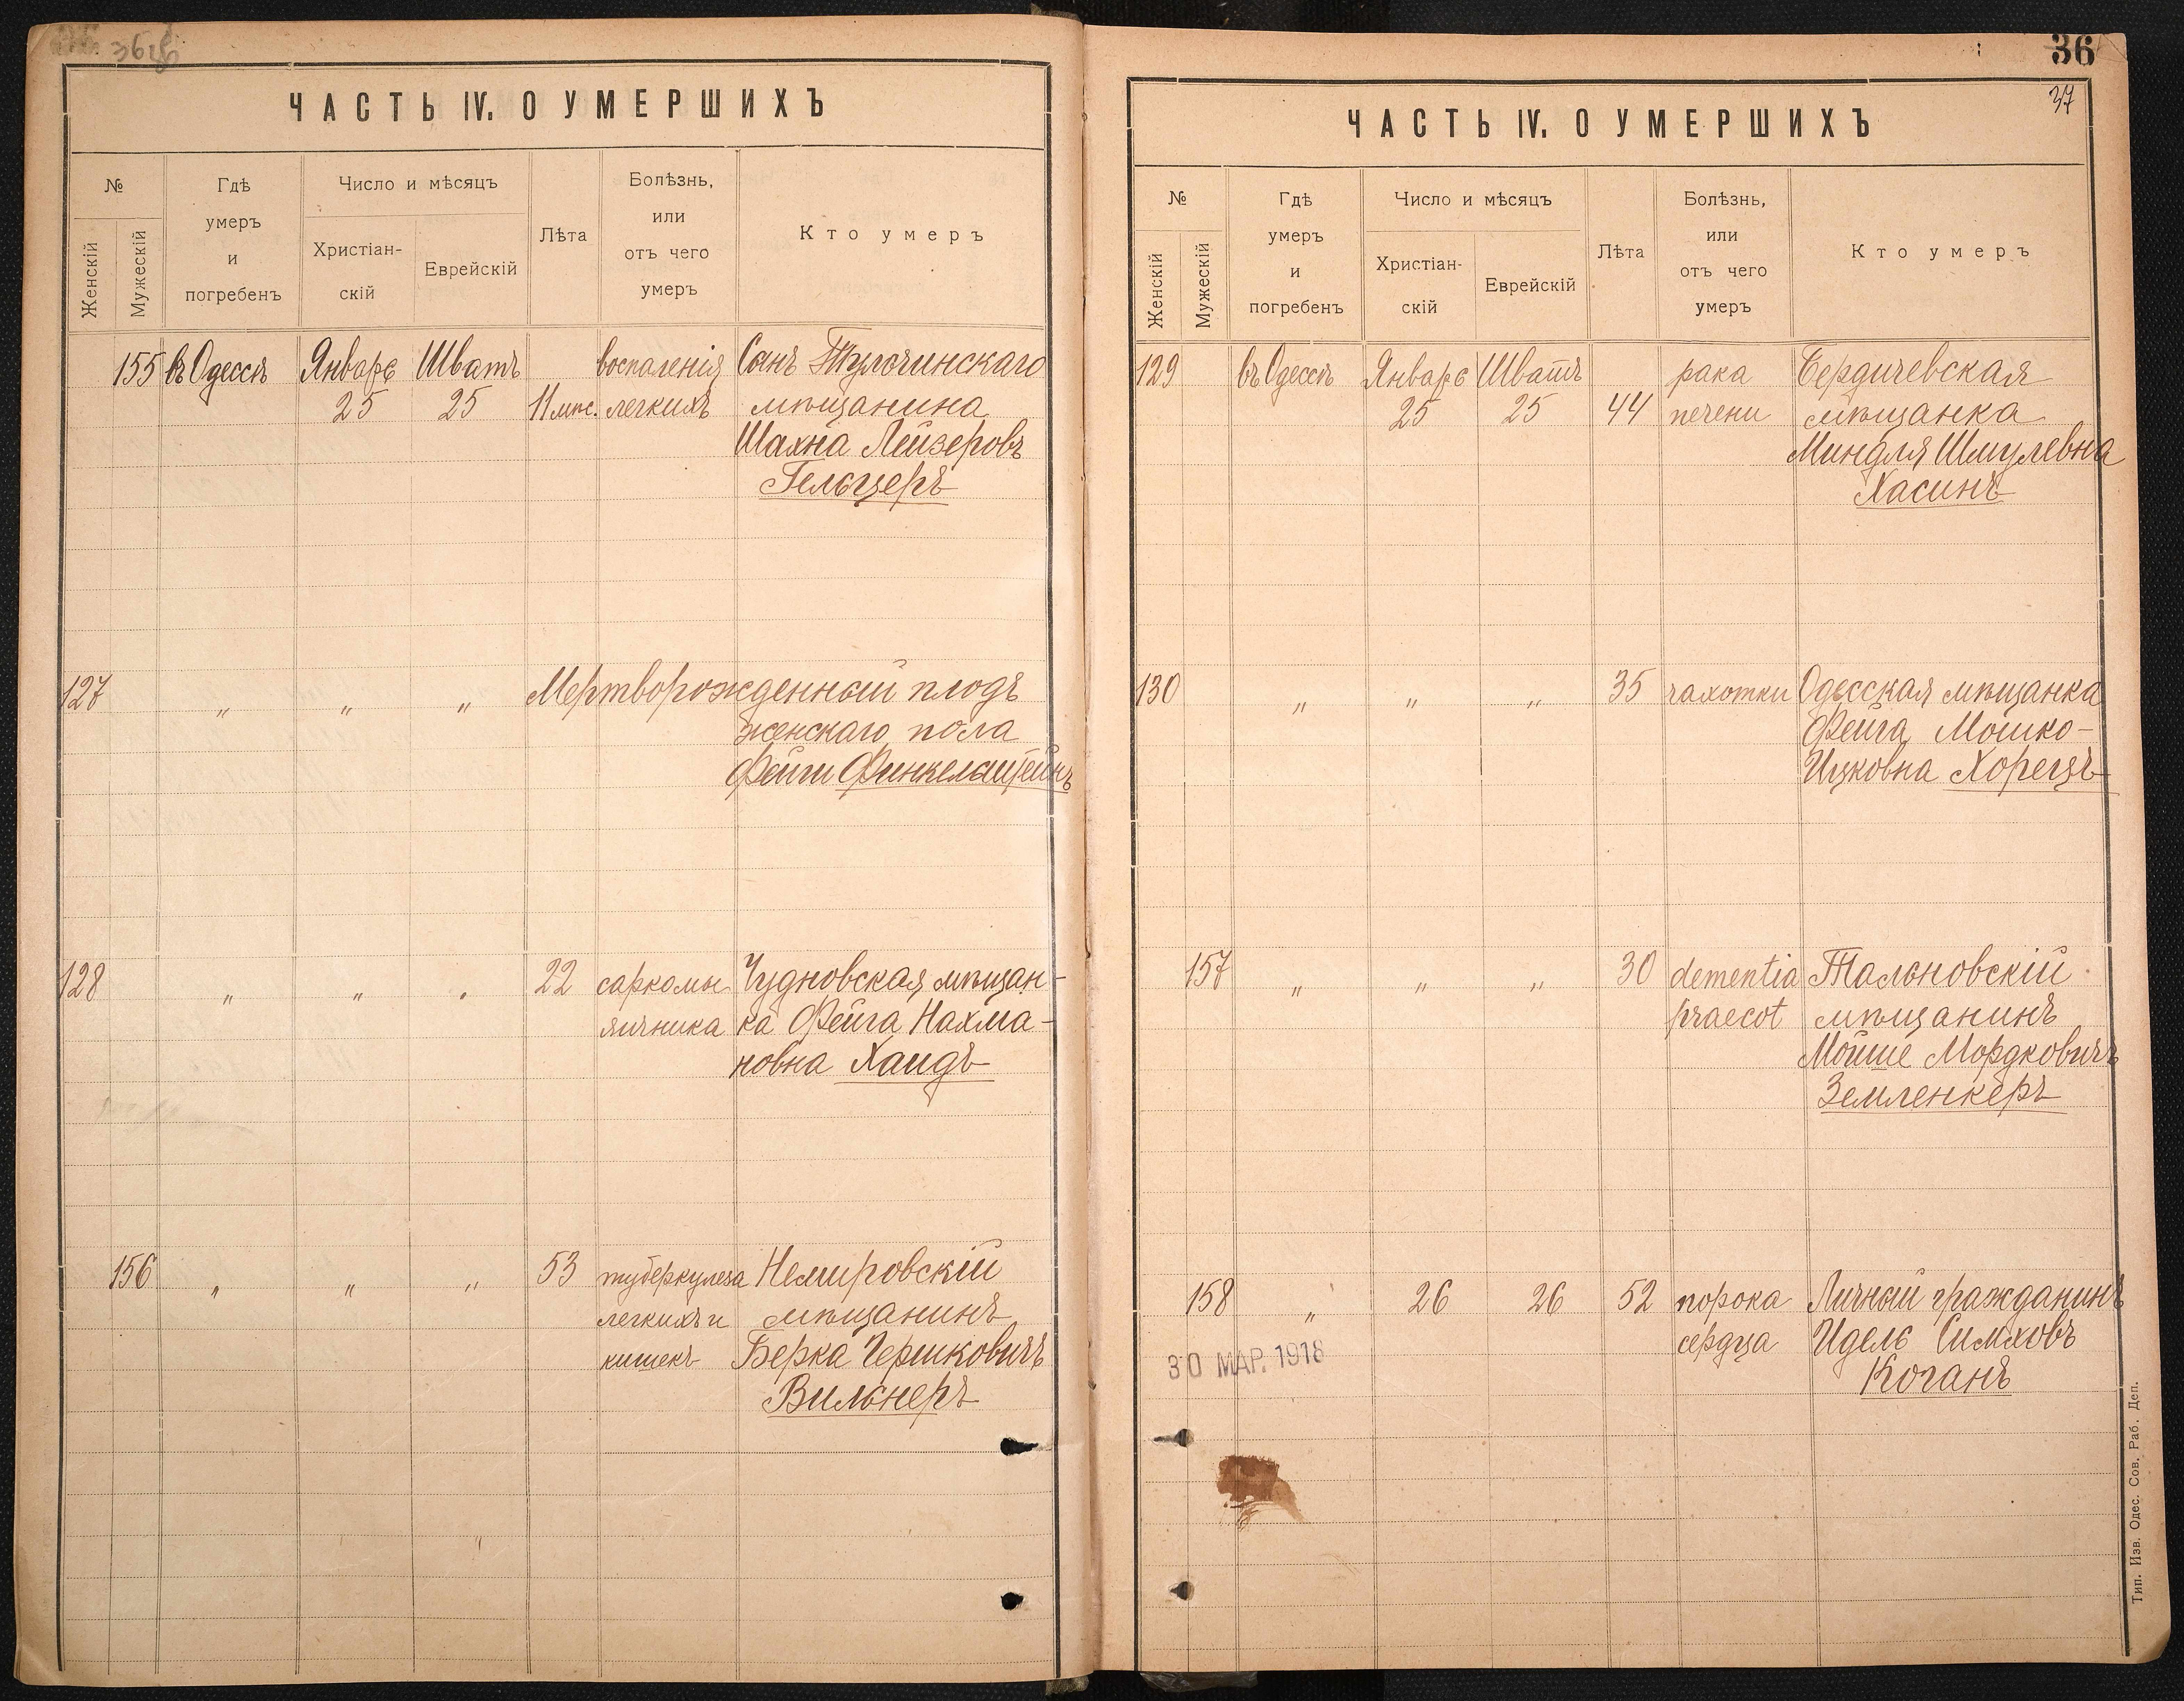 ЧАСТЬ IV. О УМЕРШИХЪ
№
Женскій
Мужескій
Гдѣ
умеръ
и
погребенъ
Число и мѣсяцъ
Христіан-
скій
Еврейскій
Лѣта
Болѣзнь,
или
отъ чего
умеръ
Кто умеръ
155 въ Одессѣ Январь Шватъ воспаленія Сынъ Тульчинскаго
25 25 11 мѣс. легкихъ мѣщанина
Шахна Лейзеровъ
Гельцеръ
127 „ „ „ Мертворожденный плодъ
женскаго пола
Фейги Финкельштейнъ
128 „ „ „ 22 саркомы Чудновская мѣщан-
яичника ка Фейга Нахма-
новна Хаидъ
156 „ „ „ 53 туберкулеза Немировскій
легкихъ и мѣщанинъ
кишекъ Берка Гершковичъ
Вильнеръ
36
37
ЧАСТЬ IV. О УМЕРШИХЪ
№
Женскій
Мужескій
Гдѣ
умеръ
и
погребенъ
Число и мѣсяцъ
Христіан-
скій
Еврейскій
Лѣта
Болѣзнь,
или
отъ чего
умеръ
Кто умеръ
129 въ Одессѣ Январь Шватъ рака Бердичевская
25 25 44 печени мѣщанка
Миндля Шмулевна
Хасинъ
130 „ „ „ 35 чахотки Одесская мѣщанка
Фейга Мошко-
Ицковна Хорецъ
157 „ „ „ 30 dementia Тальновскій
praecot мѣщанинъ
Мойше Мордковичъ
Земленкеръ
158 „ 26 26 52 порока Личный гражданинъ
сердца Идель Симховъ
Коганъ
30 МАР. 1918
Тип. Изв. Одес. Сов. Раб. Деп.